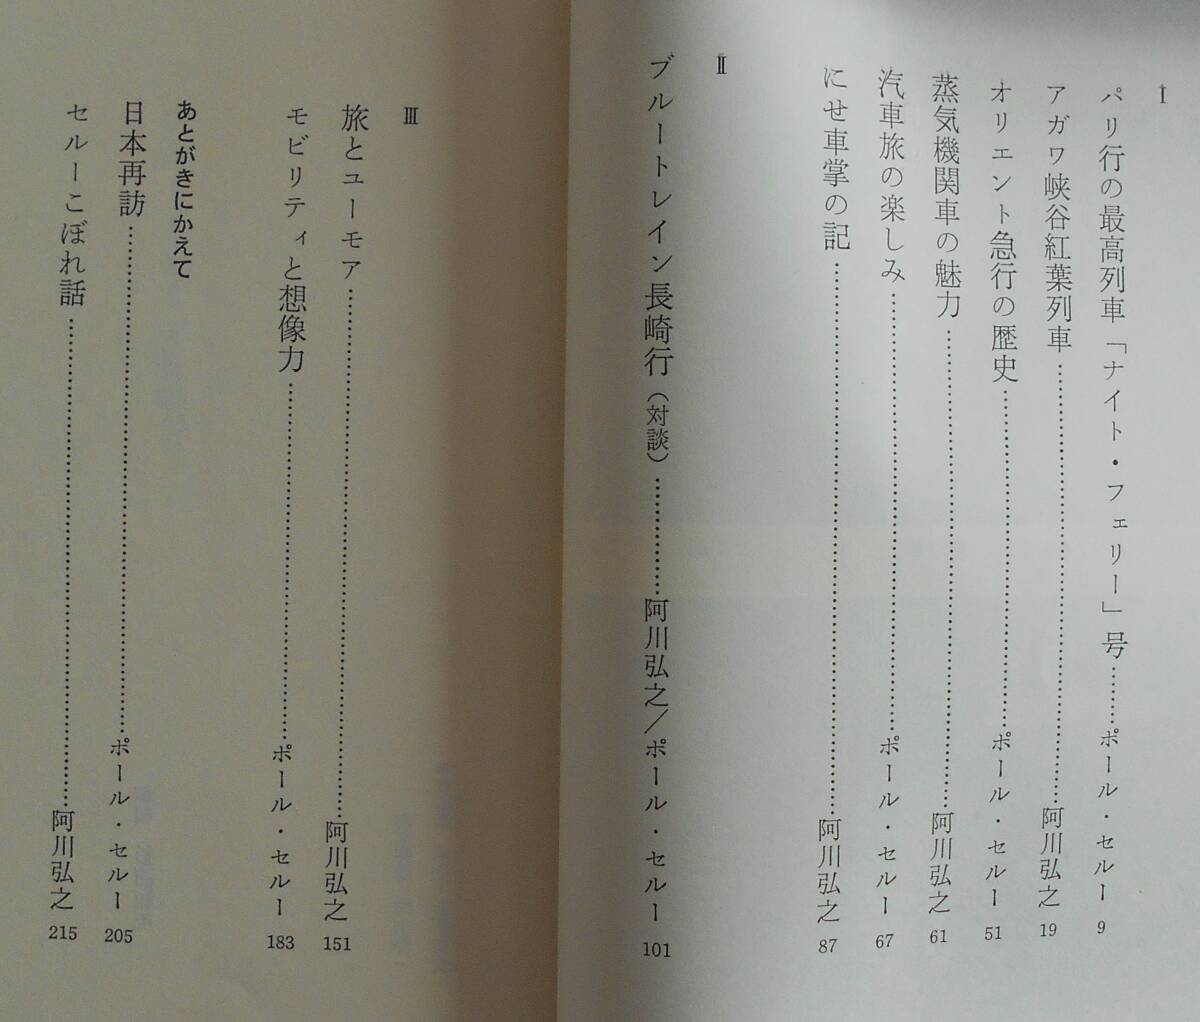 Ⅰ
パリ行の最高列車「ナイト・フェリー」号………ポール・セルー 9
アガワ峡谷紅葉列車………阿川弘之 19
オリエント急行の歴史………ポール・セルー 51
蒸気機関車の魅力………阿川弘之 61
汽車旅の楽しみ………ポール・セルー 67
にせ車掌の記………阿川弘之 87
Ⅱ
ブルートレイン長崎行（対談）………阿川弘之／ポール・セルー 101
Ⅲ
旅とユーモア………阿川弘之 151
モビリティと想像力………ポール・セルー 183
あとがきにかえて
日本再訪………ポール・セルー 205
セルーこぼれ話………阿川弘之 215